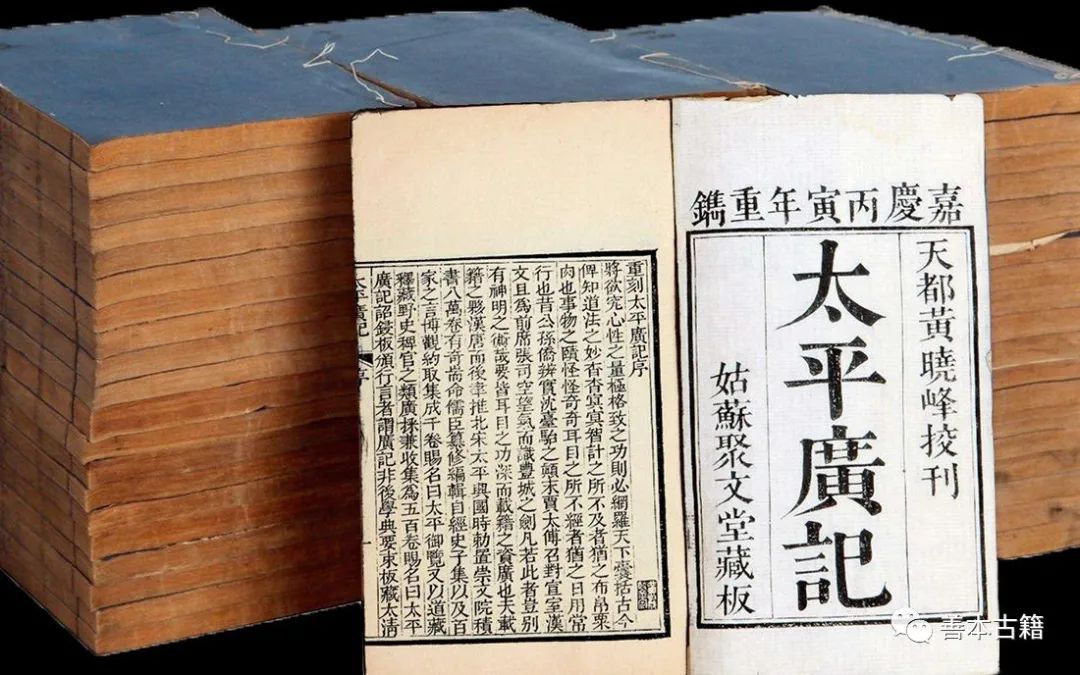 嘉慶丙寅年重鐫
天都黃曉峰挍刊
太平廣記
姑蘇聚文堂藏板
重刻太平廣記序
將欲究心性之量極格致之功則必網羅天下囊括古今
俾知道法之妙杳杳冥冥智計之所不及者猶之布帛粟
肉也事物之賾怪怪奇奇耳目之所不經者猶之日用常
行也昔公孫僑辨實沈臺駘之顛末賈太傅召對宣室漢
文且為前席張司空望氣而識豊城之劍凡若此者豈别
有神明之術哉要皆耳目之功深而載籍之資廣也夫載
籍之夥漢唐而後聿推北宋太平興國時勅置崇文院積
書八萬卷有奇耑命儒臣纂修編輯自經史子集以及百
家之言博觀約取集成千卷賜名曰太平御覽又以道藏
釋藏野史稗官之類廣採兼收集為五百卷賜名曰太平
廣記詔鋟板頒行言者謂廣記非後學典要束板藏太清
太平廣記 序
善本古籍